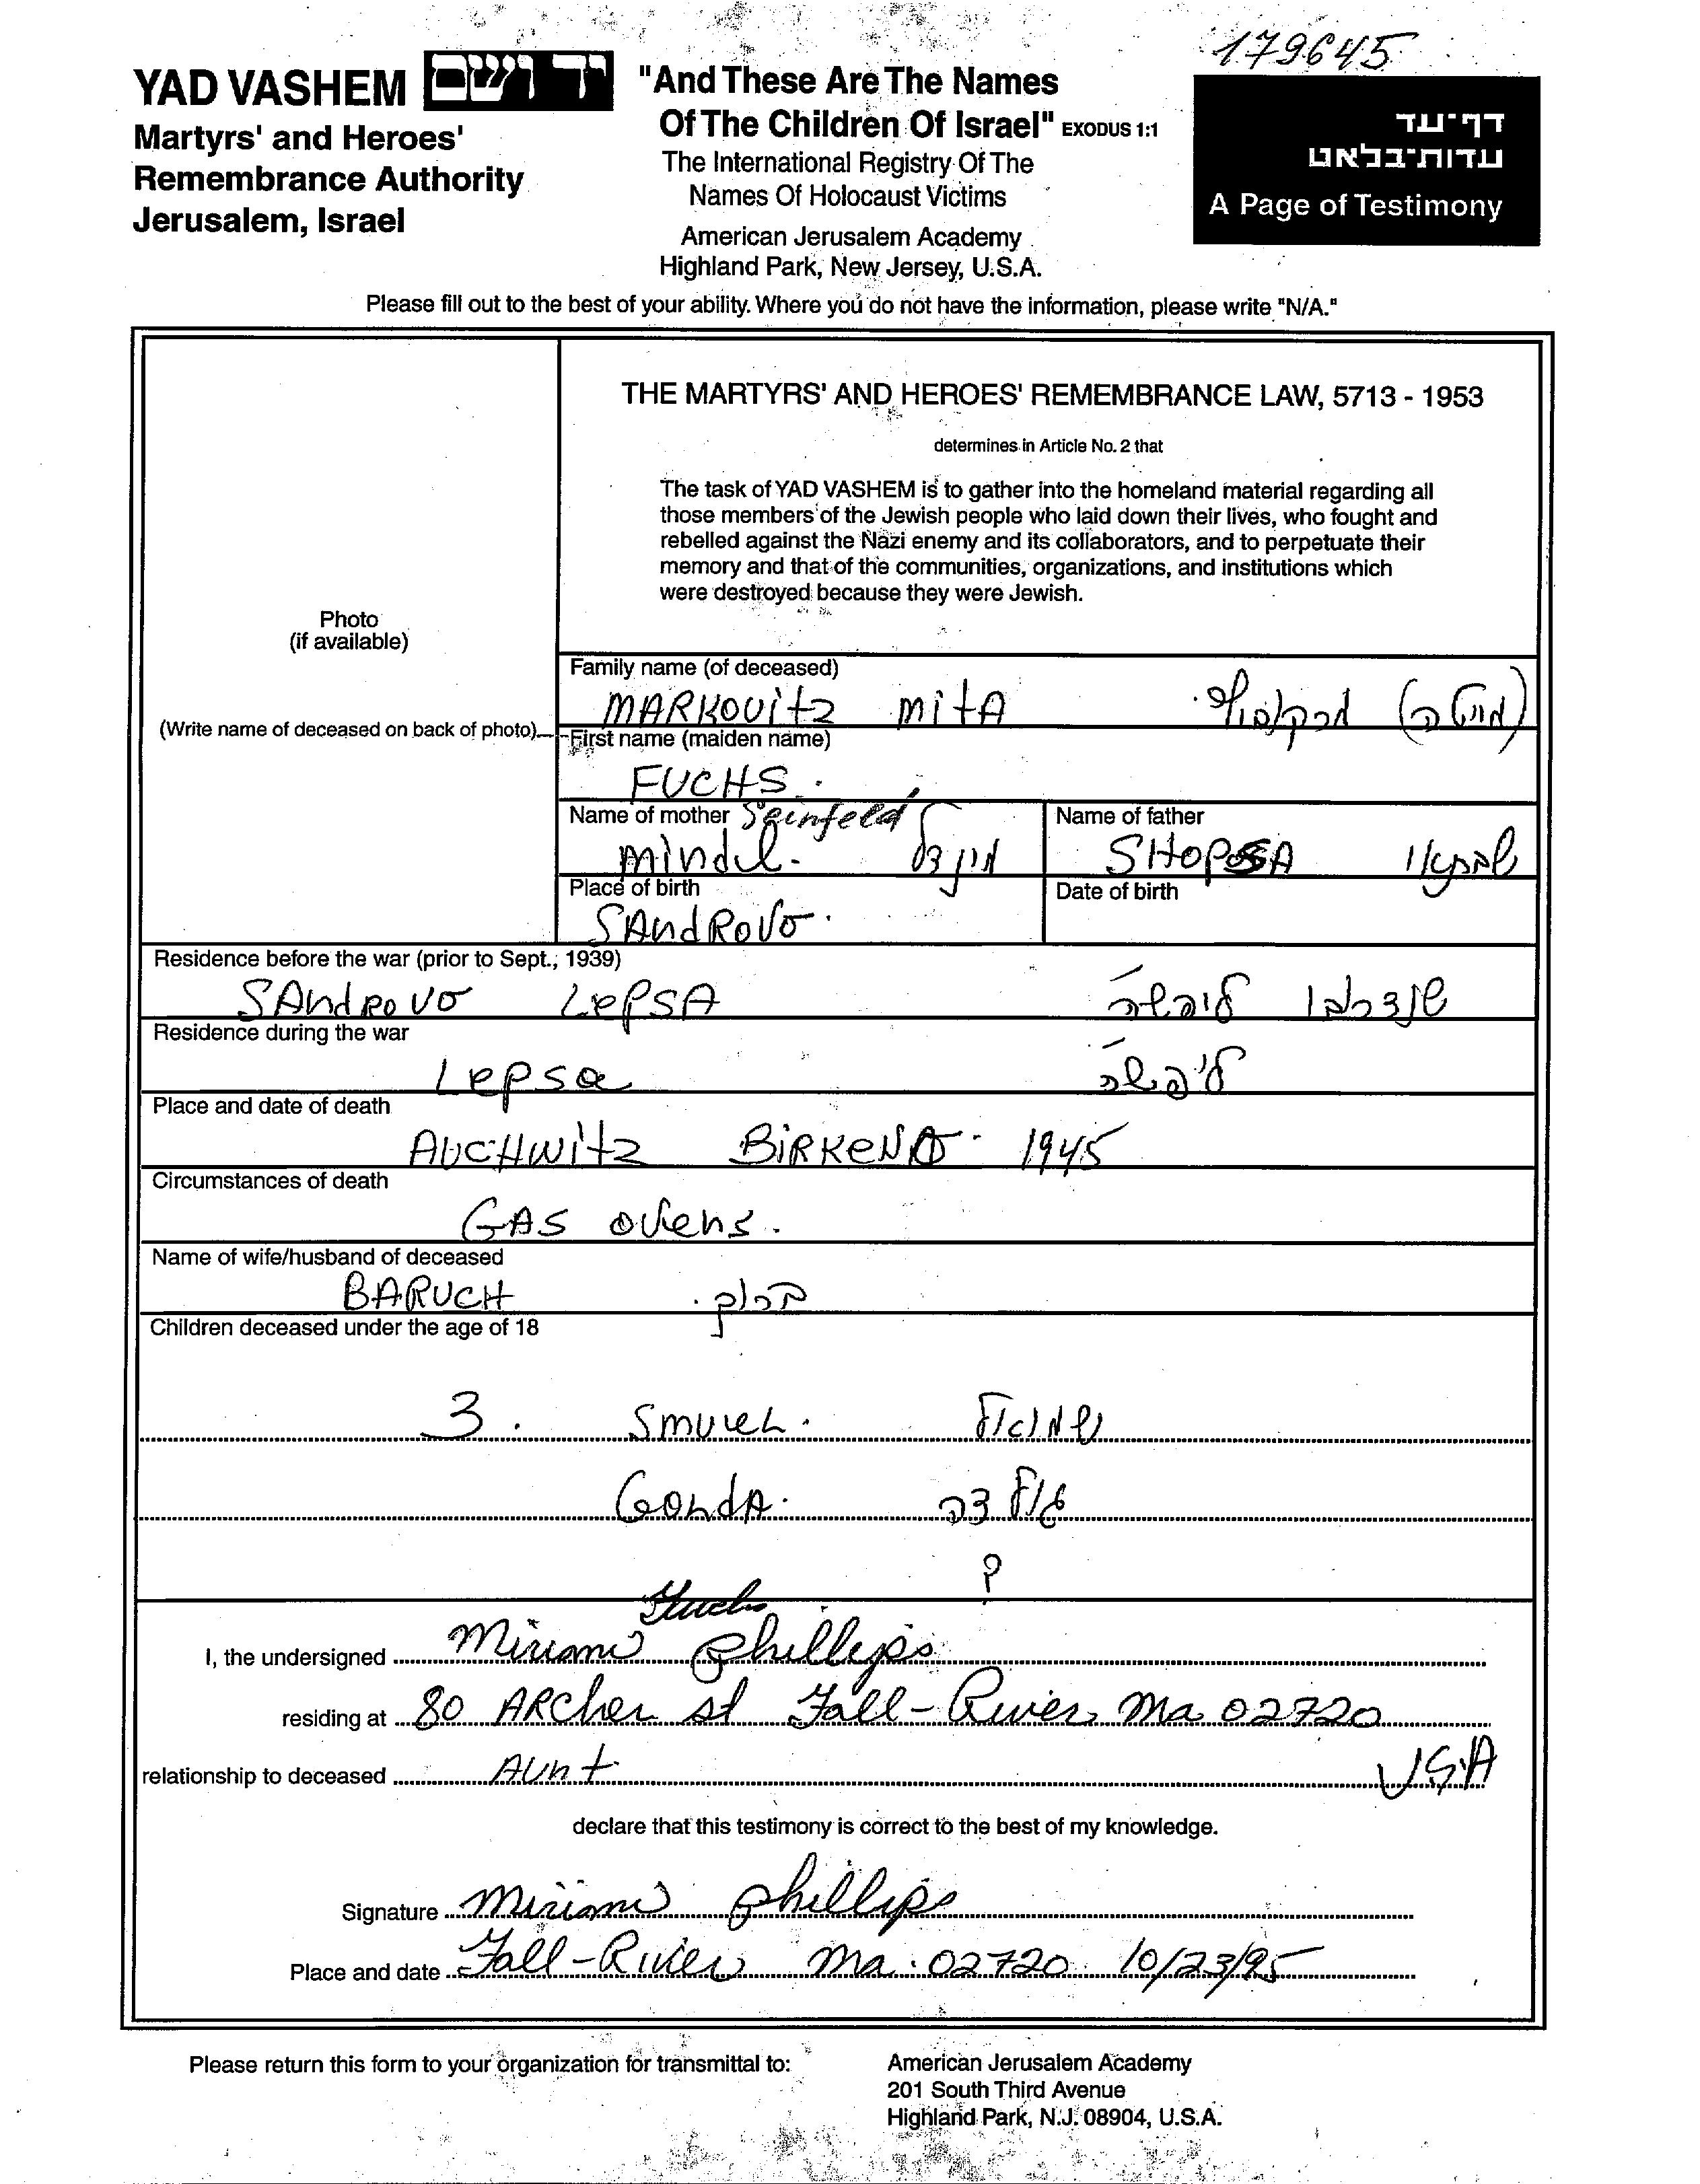 179645
YAD VASHEM יד ושם
Martyrs' and Heroes'
Remembrance Authority
Jerusalem, Israel
"And These Are The Names
Of The Children Of Israel" EXODUS 1:1
The International Registry Of The
Names Of Holocaust Victims
American Jerusalem Academy
Highland Park, New Jersey, U.S.A.
דף-עד
עדות-בלאט
A Page of Testimony
Please fill out to the best of your ability. Where you do not have the information, please write "N/A."
Photo
(if available)
(Write name of deceased on back of photo)
THE MARTYRS' AND HEROES' REMEMBRANCE LAW, 5713 - 1953
determines in Article No. 2 that
The task of YAD VASHEM is to gather into the homeland material regarding all
those members of the Jewish people who laid down their lives, who fought and
rebelled against the Nazi enemy and its collaborators, and to perpetuate their
memory and that of the communities, organizations, and institutions which
were destroyed because they were Jewish.
Family name (of deceased)
MARKOVITZ MITA מרקוביץ
First name (maiden name)
FUCHS.
Name of mother Seinfeld
Mindel. מינדל
Name of father
SHOPSA
Place of birth
SANDROVO.
Date of birth
Residence before the war (prior to Sept., 1939)
SANDROVO LEPSA
Residence during the war
Lepsa ליפשה
Place and date of death
AUCHWITZ BIRKENA 1945
Circumstances of death
GAS ovens.
Name of wife/husband of deceased
BARUCH ברוך.
Children deceased under the age of 18
3. Smuel. שמואל
Golda. גולדה
?
Fuchs
I, the undersigned Miriam Phillips
residing at 80 Archer st Fall-River, Ma 02720
USA
relationship to deceased Aunt
declare that this testimony is correct to the best of my knowledge.
Signature Miriam Phillips
Place and date Fall-River Ma. 02720 10/23/95
Please return this form to your organization for transmittal to:
American Jerusalem Academy
201 South Third Avenue
Highland Park, N.J. 08904, U.S.A.